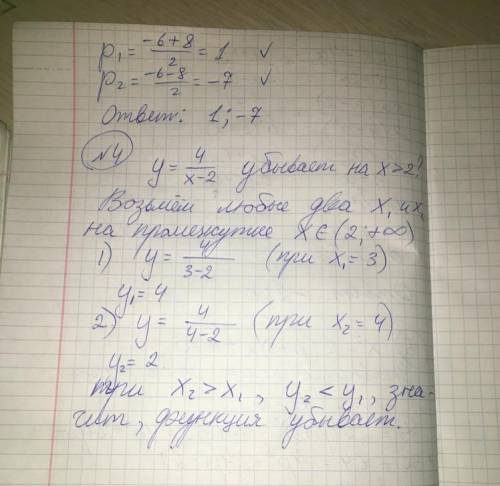 p₁ = (-6+8)/2 = 1 ✓
p₂ = (-6-8)/2 = -7 ✓
Ответ: 1; -7
№4
y = 4/(x-2) убывает на x>2!
Возьмём любые два x₁ и x₂
на промежутке x∈(2;+∞)
1) y = 4/(3-2) (при x₁=3)
y₁=4
2) y = 4/(4-2) (при x₂=4)
y₂=2
при x₂>x₁, y₂<y₁, зна-
чит, функция убывает.